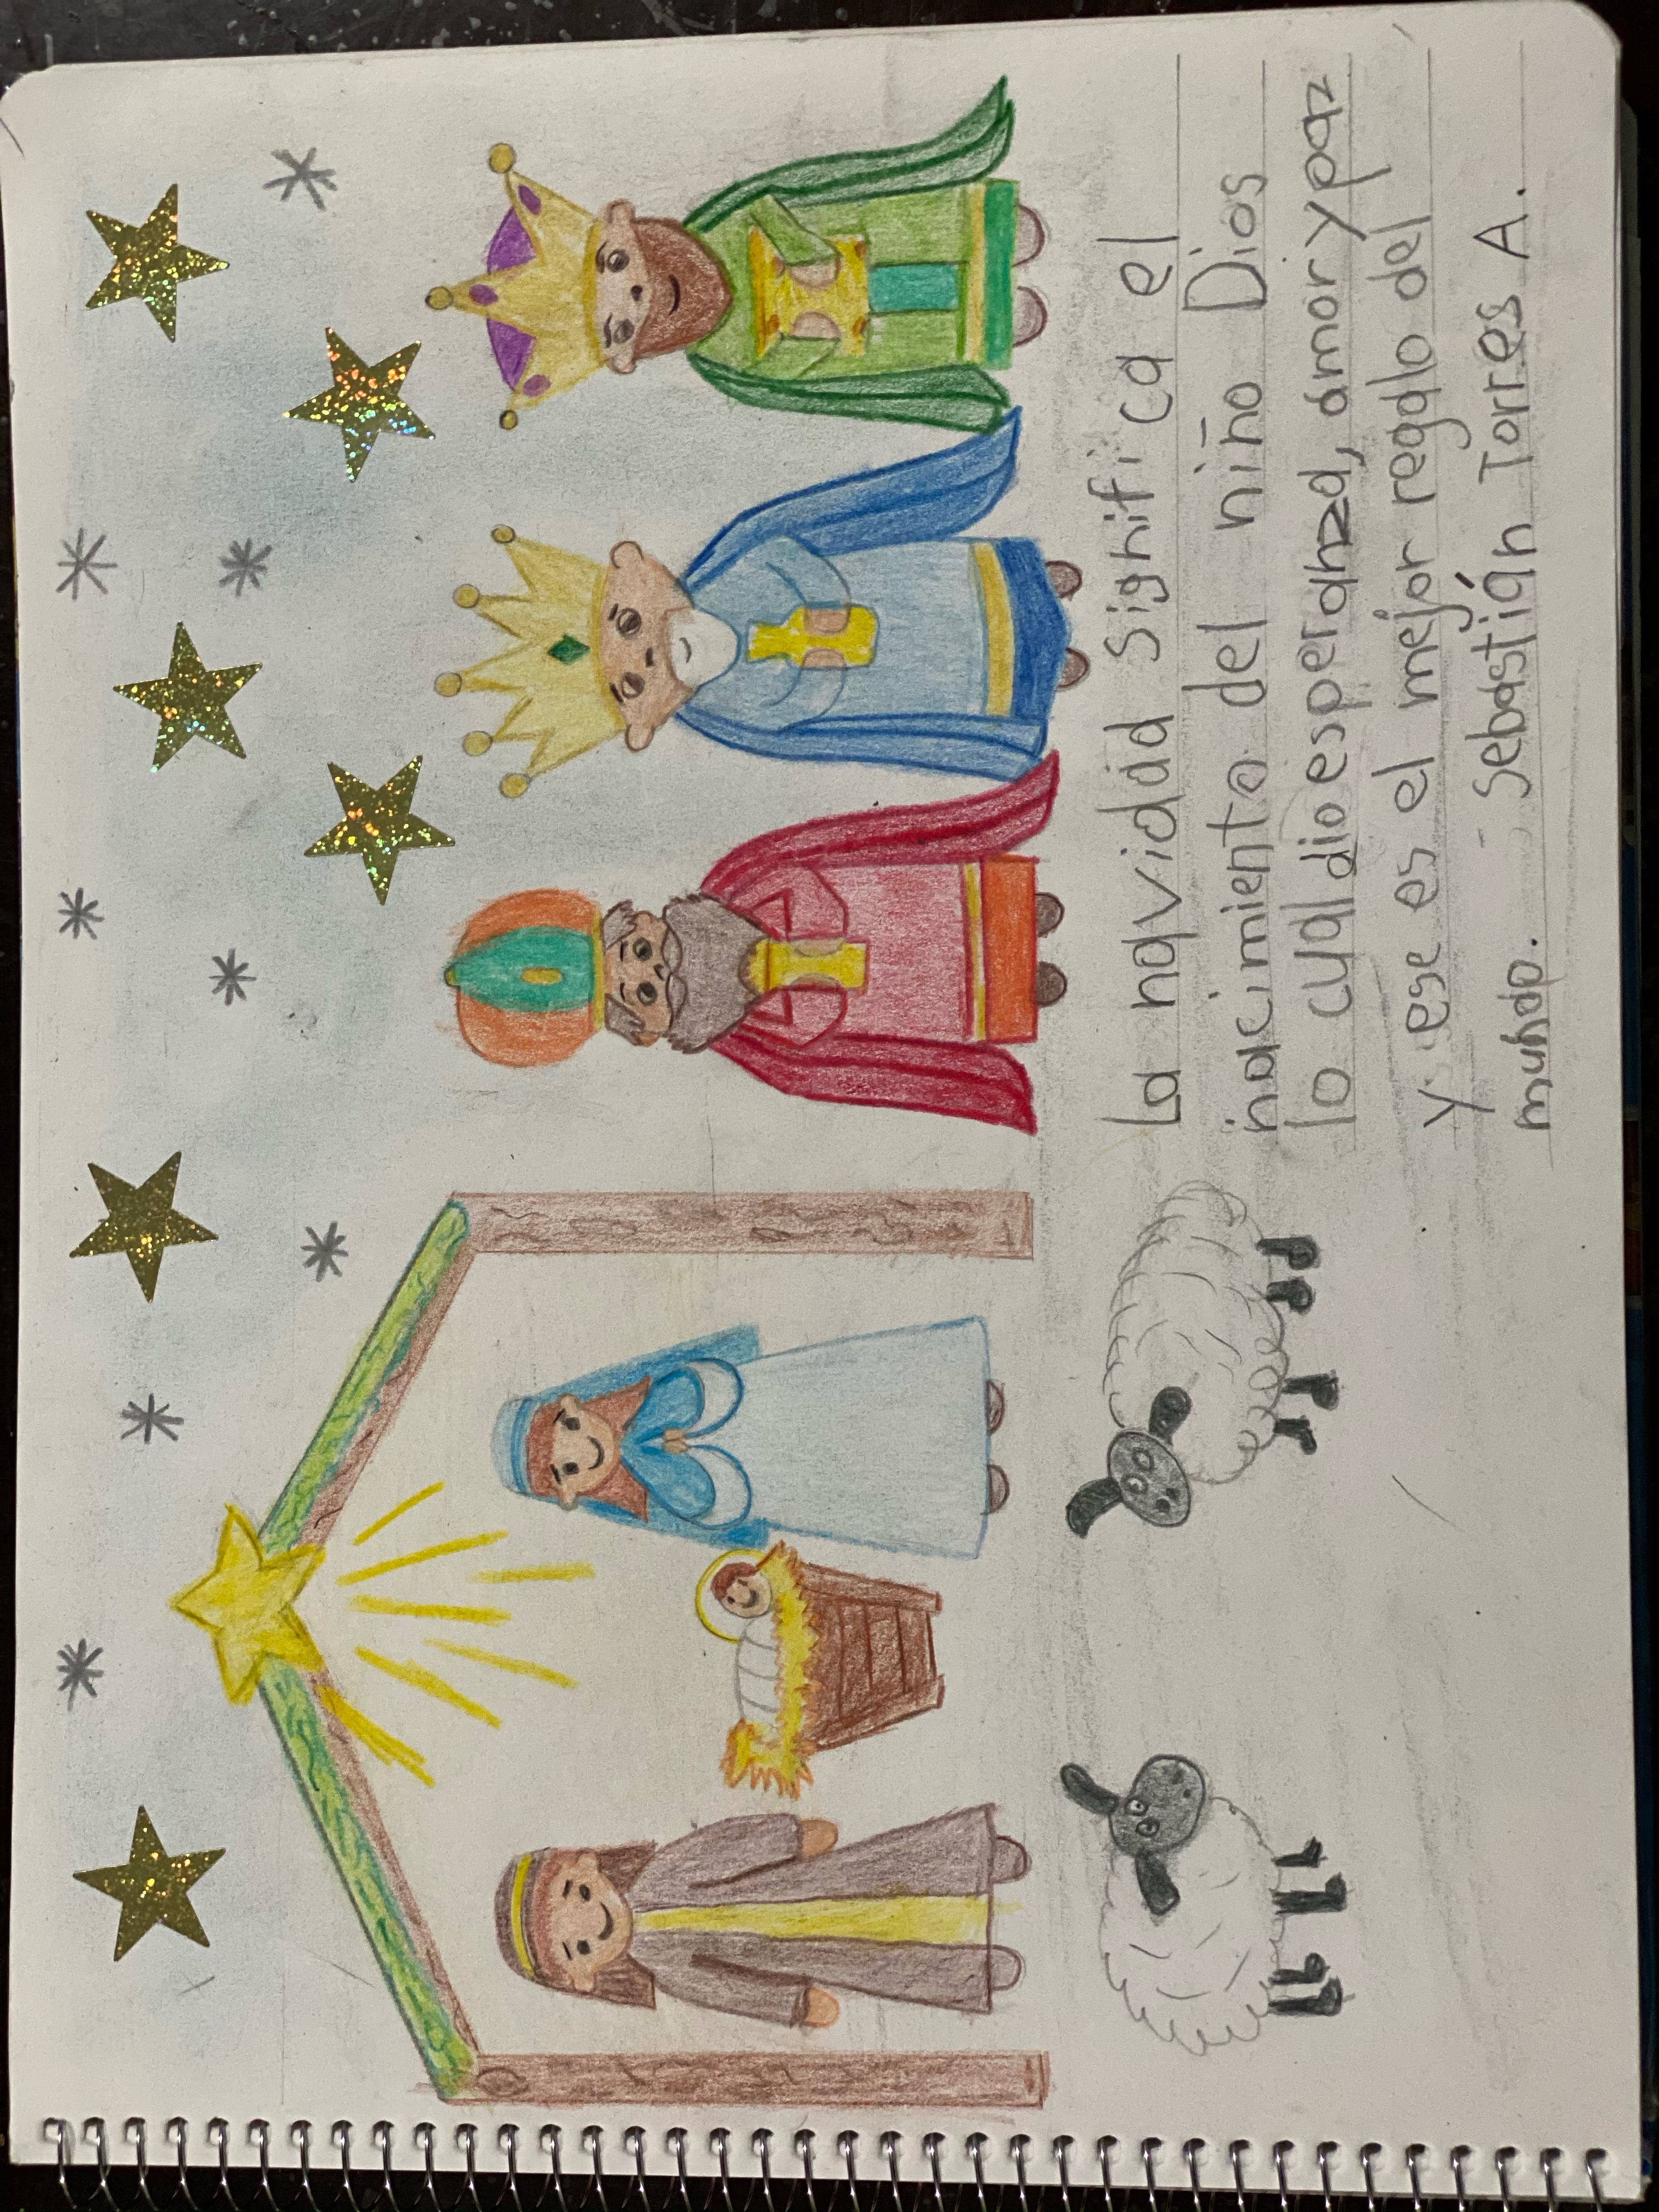 La navidad significa el
nacimiento del niño Dios
lo cual dio esperanza, amor y paz
y ese es el mejor regalo del
mundo. - Sebastián Torres A.